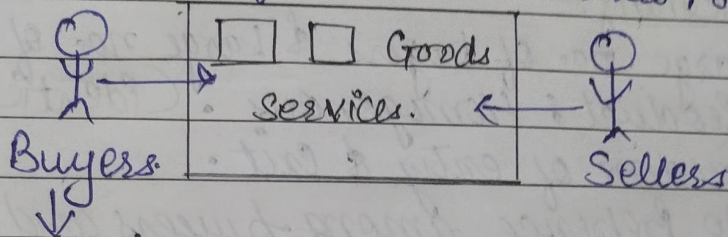 Goods
Services.
Buyers.
Sellers